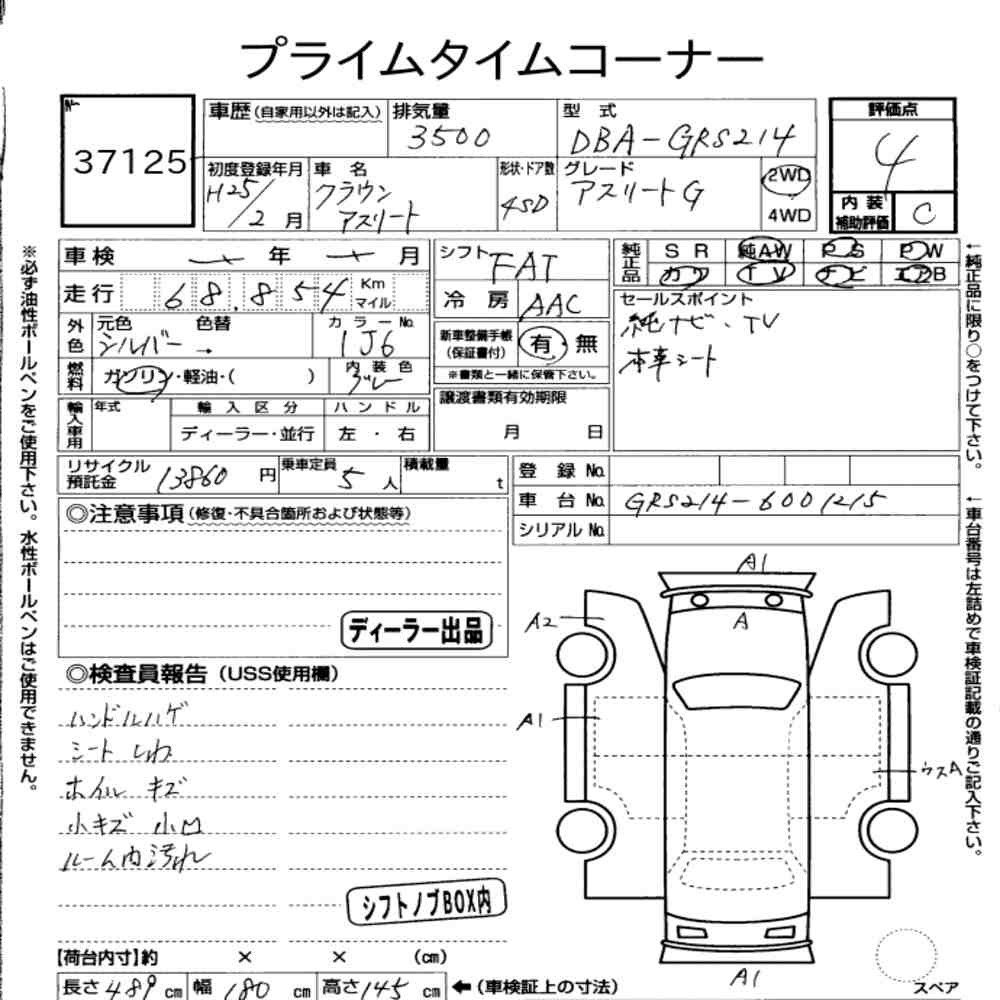 プライムタイムコーナー
37125
車歴(自家用以外は記入)
排気量
3500
型 式
DBA-GRS214
評価点
4
内装補助評価
C
初度登録年月
H25/2月
車 名
クラウン
アスリート
形状・ドア数
4SD
グレード
アスリートG
2WD
4WD
車検 年 月
走行 68.854 Km マイル
外色
元色 色替
シルバー →
カラーNo.
1J6
燃料
ガソリン・軽油・( )
内装色
グレー
輸入車用
年式
輸入区分
ハンドル
ディーラー・並行
左・右
シフト
FAT
冷房
AAC
新車整備手帳
(保証書付)
有 無
※書類と一緒に保管下さい。
譲渡書類有効期限
月 日
純正品
SR 純AW PS PW
カワ TV ナビ エアB
セールスポイント
純ナビ・TV
本革シート
リサイクル預託金 13860 円
乗車定員 5 人
積載量 t
登録No.
車台No. GRS214-6001215
シリアルNo.
◎注意事項(修復・不具合箇所および状態等)
ディーラー出品
◎検査員報告(USS使用欄)
ハンドルハゲ
シート しわ
ホイル キズ
小キズ 小凹
ルーム内汚れ
シフトノブBOX内
【荷台内寸】約 × × (cm)
長さ489cm 幅180cm 高さ145cm ←(車検証上の寸法)
A1
A2
A
A1
ウスA
A1
スペア
※必ず油性ボールペンをご使用下さい。水性ボールペンはご使用できません。
←純正品に限り○をつけて下さい。
←車台番号は左詰めで車検証記載の通りご記入下さい。